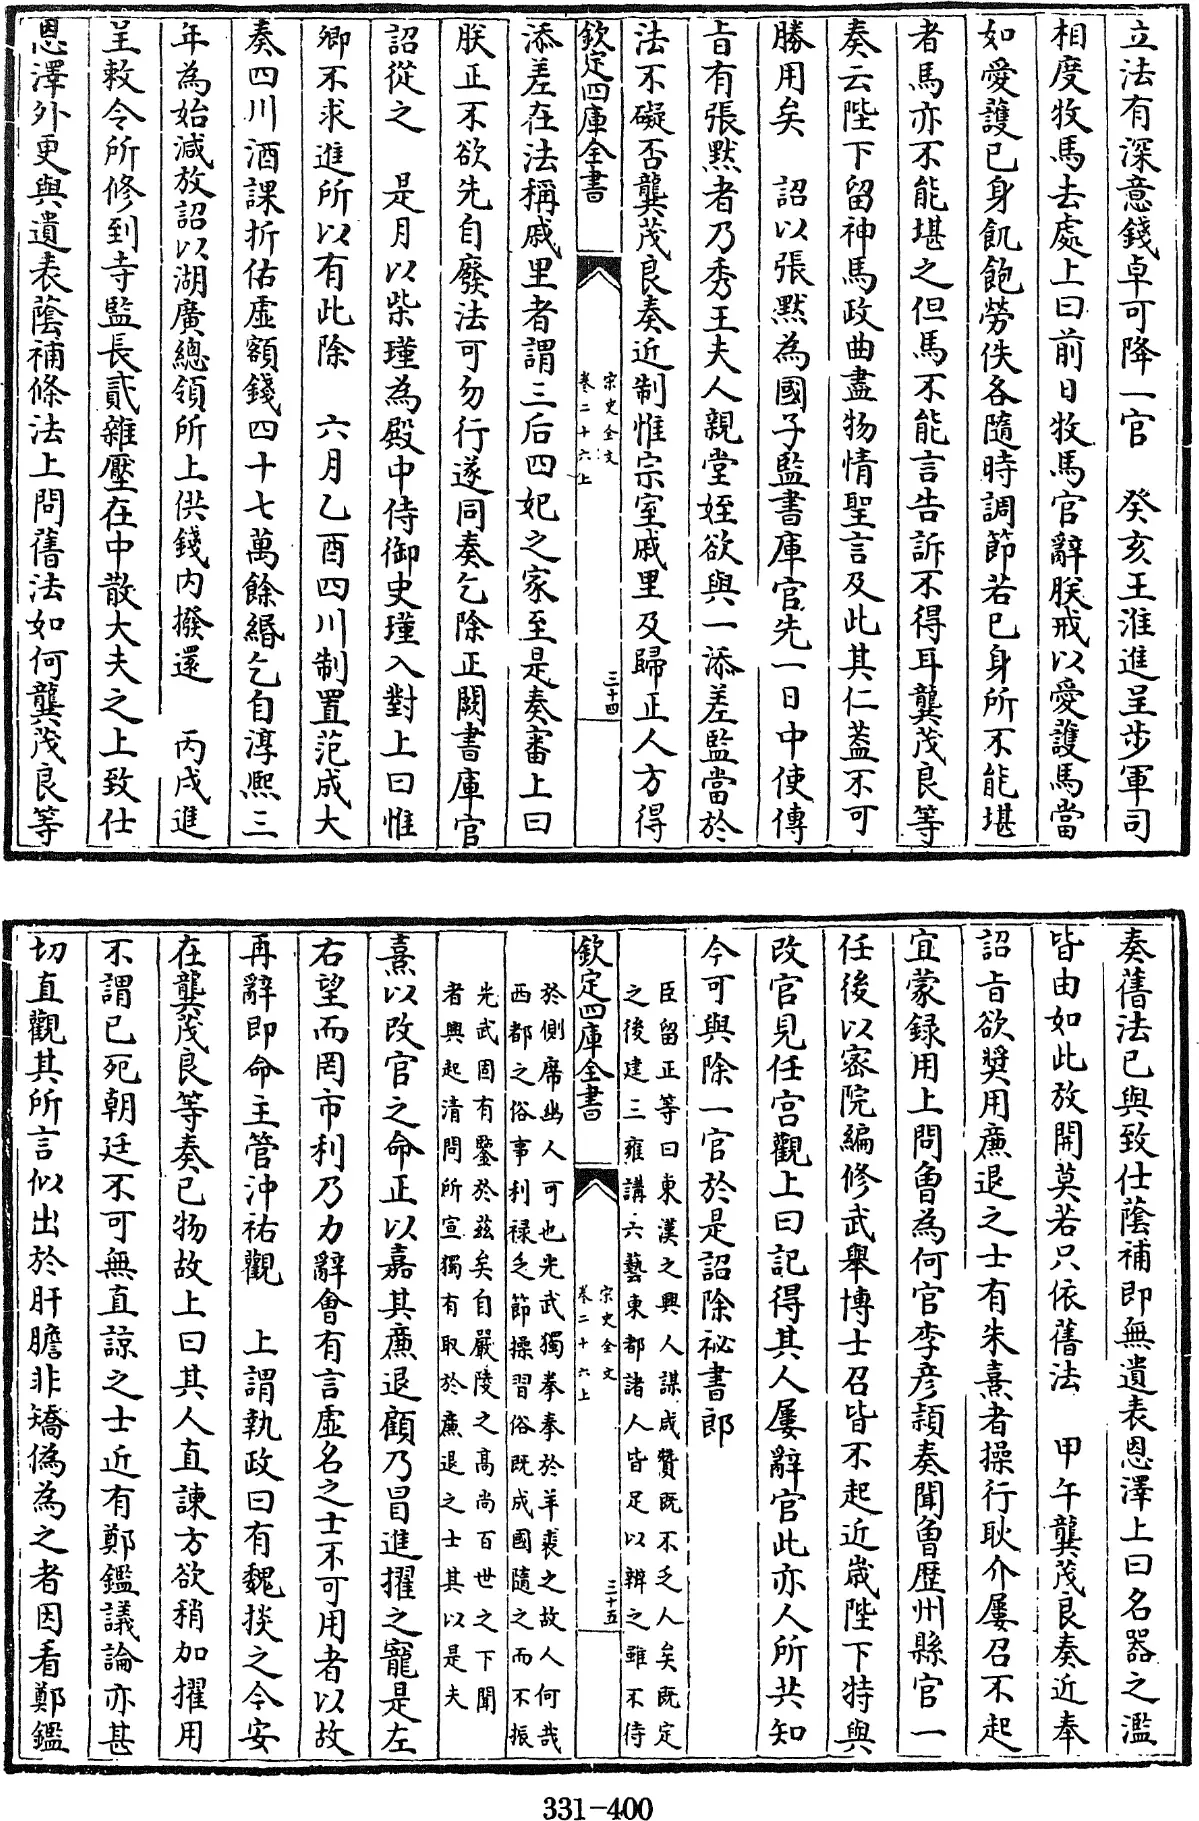 立法有深意錢卓可降一官　癸亥王淮進呈步軍司
相度牧馬去處上曰前日牧馬官辭朕戒以愛護馬當
如愛護已身飢飽勞佚各隨時調節若已身所不能堪
者馬亦不能堪之但馬不能言告訴不得耳龔茂良等
奏云陛下留神馬政曲盡物情聖言及此其仁蓋不可
勝用矣　詔以張默為國子監書庫官先一日中使傳
旨有張默者乃秀王夫人親堂姪欲與一添差監當於
法不礙否龔茂良奏近制惟宗室戚里及歸正人方得
欽定四庫全書
宋史全文
卷二十六上
三十四
添差在法稱戚里者謂三后四妃之家至是奏審上曰
朕正不欲先自廢法可勿行遂同奏乞除正闕書庫官
詔從之　是月以柴瑾為殿中侍御史瑾入對上曰惟
卿不求進所以有此除　六月乙酉四川制置范成大
奏四川酒課折佑虛額錢四十七萬餘緡乞自淳熙三
年為始減放詔以湖廣總領所上供錢內撥還　丙戌進
呈敕令所修到寺監長貳雜壓在中散大夫之上致仕
恩澤外更與遺表蔭補條法上問舊法如何龔茂良等
奏舊法已與致仕蔭補即無遺表恩澤上曰名器之濫
皆由如此放開莫若只依舊法　甲午龔茂良奏近奉
詔旨欲獎用廉退之士有朱熹者操行耿介屢召不起
宜蒙録用上問曾為何官李彦穎奏聞曾歷州縣官一
任後以密院編修武舉博士召皆不起近歲陛下特與
改官見任宫觀上曰記得其人屢辭官此亦人所共知
今可與除一官於是詔除秘書郎
臣留正等曰東漢之興人謀咸贊既不乏人矣既定
之後建三雍講六藝東都諸人皆足以辦之雖不待
欽定四庫全書
宋史全文
卷二十六上
三十五
於側席幽人可也光武獨拳拳於羊裘之故人何哉
西都之俗事利禄乏節操習俗既成國隨之而不振
光武固有鑒於兹矣自嚴陵之高尚百世之下聞
者興起清問所宣獨有取於廉退之士其以是夫
熹以改官之命正以嘉其廉退顧乃冒進擢之寵是左
右望而罔市利乃力辭會有言虛名之士不可用者以故
再辭即命主管沖祐觀　上謂執政曰有魏掞之今安
在龔茂良等奏已物故上曰其人直諫方欲稍加擢用
不謂已死朝廷不可無直諒之士近有鄭鑑議論亦甚
切直觀其所言似出於肝膽非矯偽為之者因看鄭鑑
331-400